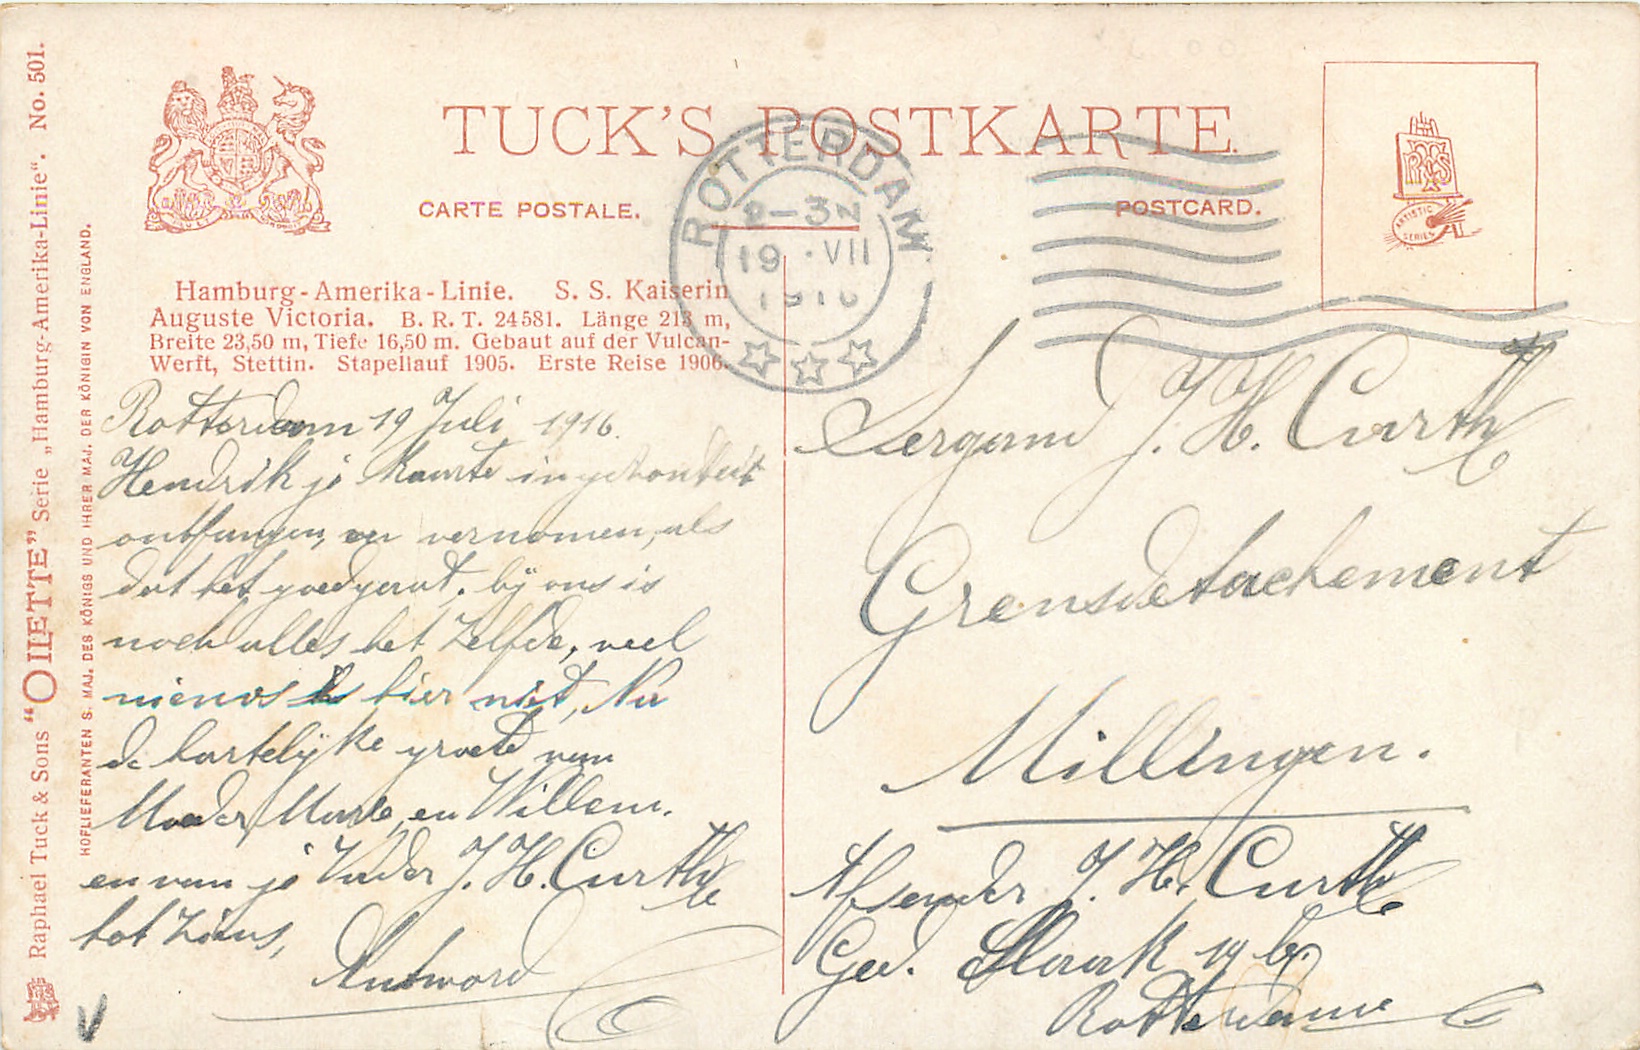 TUCK'S POSTKARTE.
CARTE POSTALE.
POSTCARD.
ROTTERDAM
19 · VII
1916
RTS
ARTISTIC
SERIES
Raphael Tuck & Sons “OILETTE” Serie „Hamburg-Amerika-Linie“. No. 501.
HOFLIEFERANTEN S. MAJ. DES KÖNIGS UND IHRER MAJ. DER KÖNIGIN VON ENGLAND.
Hamburg-Amerika-Linie. S. S. Kaiserin
Auguste Victoria. B. R. T. 24581. Länge 213 m,
Breite 23,50 m, Tiefe 16,50 m. Gebaut auf der Vulcan-
Werft, Stettin. Stapellauf 1905. Erste Reise 1906.
Rotterdam 19 Juli 1916.
Hendrik je kaarte in gezondheit
ontfangen, en vernomen, als
dat het goed gaat. bij ons is
noch alles het Zelfde, veel
nieuws is hier niet, Nu
de hartelijke groete van
Moeder Marie, en Willem.
en van je Vader J. H. Curth
tot Ziens,
Antword
Sergant J. H. Curth
Grensdetachement
Millingen.
Afsender J. H. Curth
Ged. Slaak 19 b.
Rotterdam